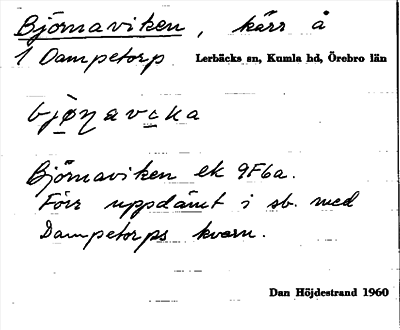 Björnaviken, kärr å
1 Dampetorp Lerbäcks sn, Kumla hd, Örebro län
Björnaviken ek 9F6a.
Förr uppdämt i sb. med
Dampetorps kvarn.
Dan Höjdestrand 1960